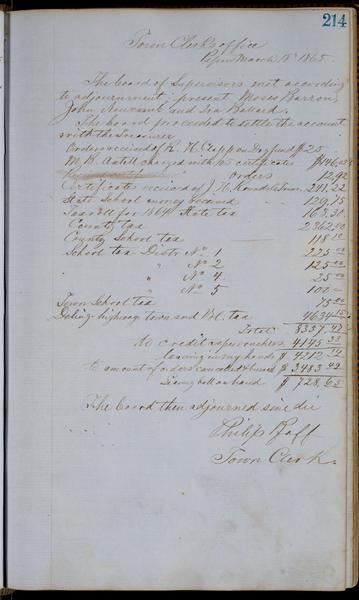 214
Town Clerks office
Ripon March 18th 1865
The board of Supervisors met according
to adjournment; present Moses Barron,
John Newcomb and Ira Ballard.
The board proceeded to settle the account
with the Treasurer
Orders received of K. H. Clapp on Dog fund $ 25
M. B. charged with certificates $
orders 12,92
Certificates received of J. H. 241,22
State School money received 129,75
Tax roll for 1864 State tax
County tax
County School tax 118
School tax Distr. No 1 225.00
" No 2 125.00
" No 4 25.00
" No 5 100
Town School tax 75.00
Delinq. highway town and tax 4634
Total 8357.47
To credit as per vouchers 4145.33
leaving in my hands $ 4212.14
to amount of orders cancelled & burned $ 3483.49
Leaving bal on hand $ 728,65
The board then adjourned sine die
Philip
Town Clerk